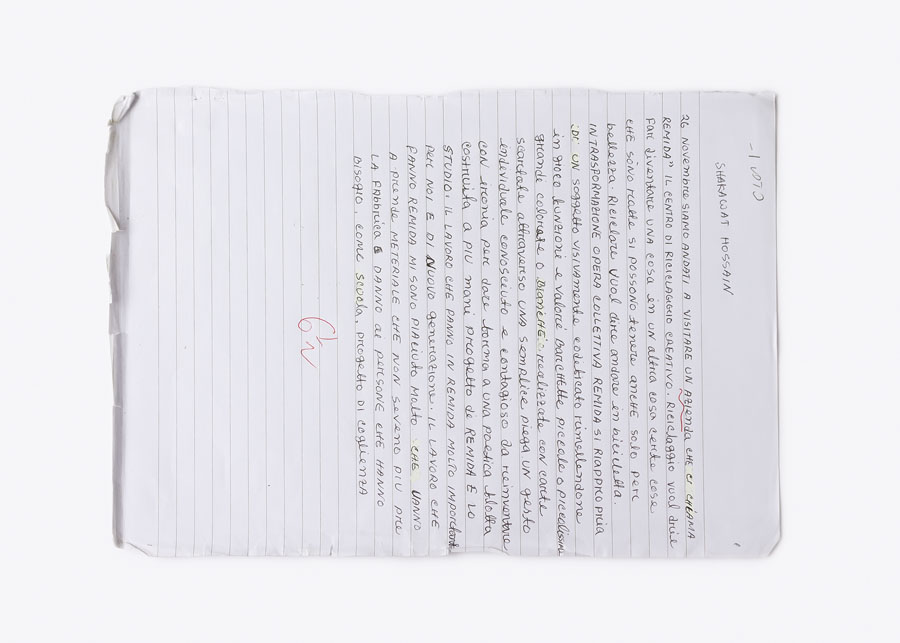 SHAKAWAT HOSSAIN
26 NOVEMBRE SIAMO ANDATI A VISITARE UN AZIENDA CHE CI CHIAMA
REMIDA" IL CENTRO DI RICICLAGGIO CREATIVO. RICICLAGGIO VUOL DRIE
FAR DIVENTARE UNA COSA IN UN ALTRA COSA CERTE COSE
CHE SONO SI POSSONO TENERE ANCHE SOLO PER
bellezza. Riciclare vuol dire andare in bicicletta.
INTRASPORMAZIONE OPERA COLLETTIVA REMIDA SI RIAPPROPRIA
DI UN SOGGETTO VISIVAMENTE codificato rimettendone
in gioco funzioni e valori BARCHETTE piccole o piccolissime
grande colorate o BIANCHE realizzate con carte
scartate attraverso una semplice piega un gesto
individuale conosciuto e contagioso da reinventare
con ironia per dare forma a una poetica flotta
costruita a più mani progetto de REMIDA E LO
STUDIO. IL LAVORO CHE FANNO IN REMIDA MOLTO IMPORTANT
PER NOI E DI NUOVO generazione. IL LAVORO CHE
FANNO REMIDA MI SONO PIACIUDO MOLTO CHE VANNO
A PRENDE METERIALE CHE NON SEVENO PIU PRE
LA FABBRICA E DANNO ai PERSONE CHE HANNO
BISOGIO, COME SCOOLA, PROGETTO DI COGLIENZA
6½